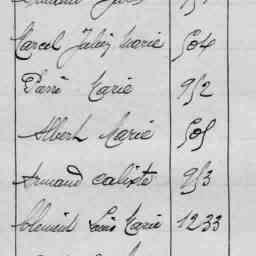 Marcel Julien Marie 504
Pierre Marie 952
Albert Marie 505
Armand Calixte 953
Clément Louis Marie 1233